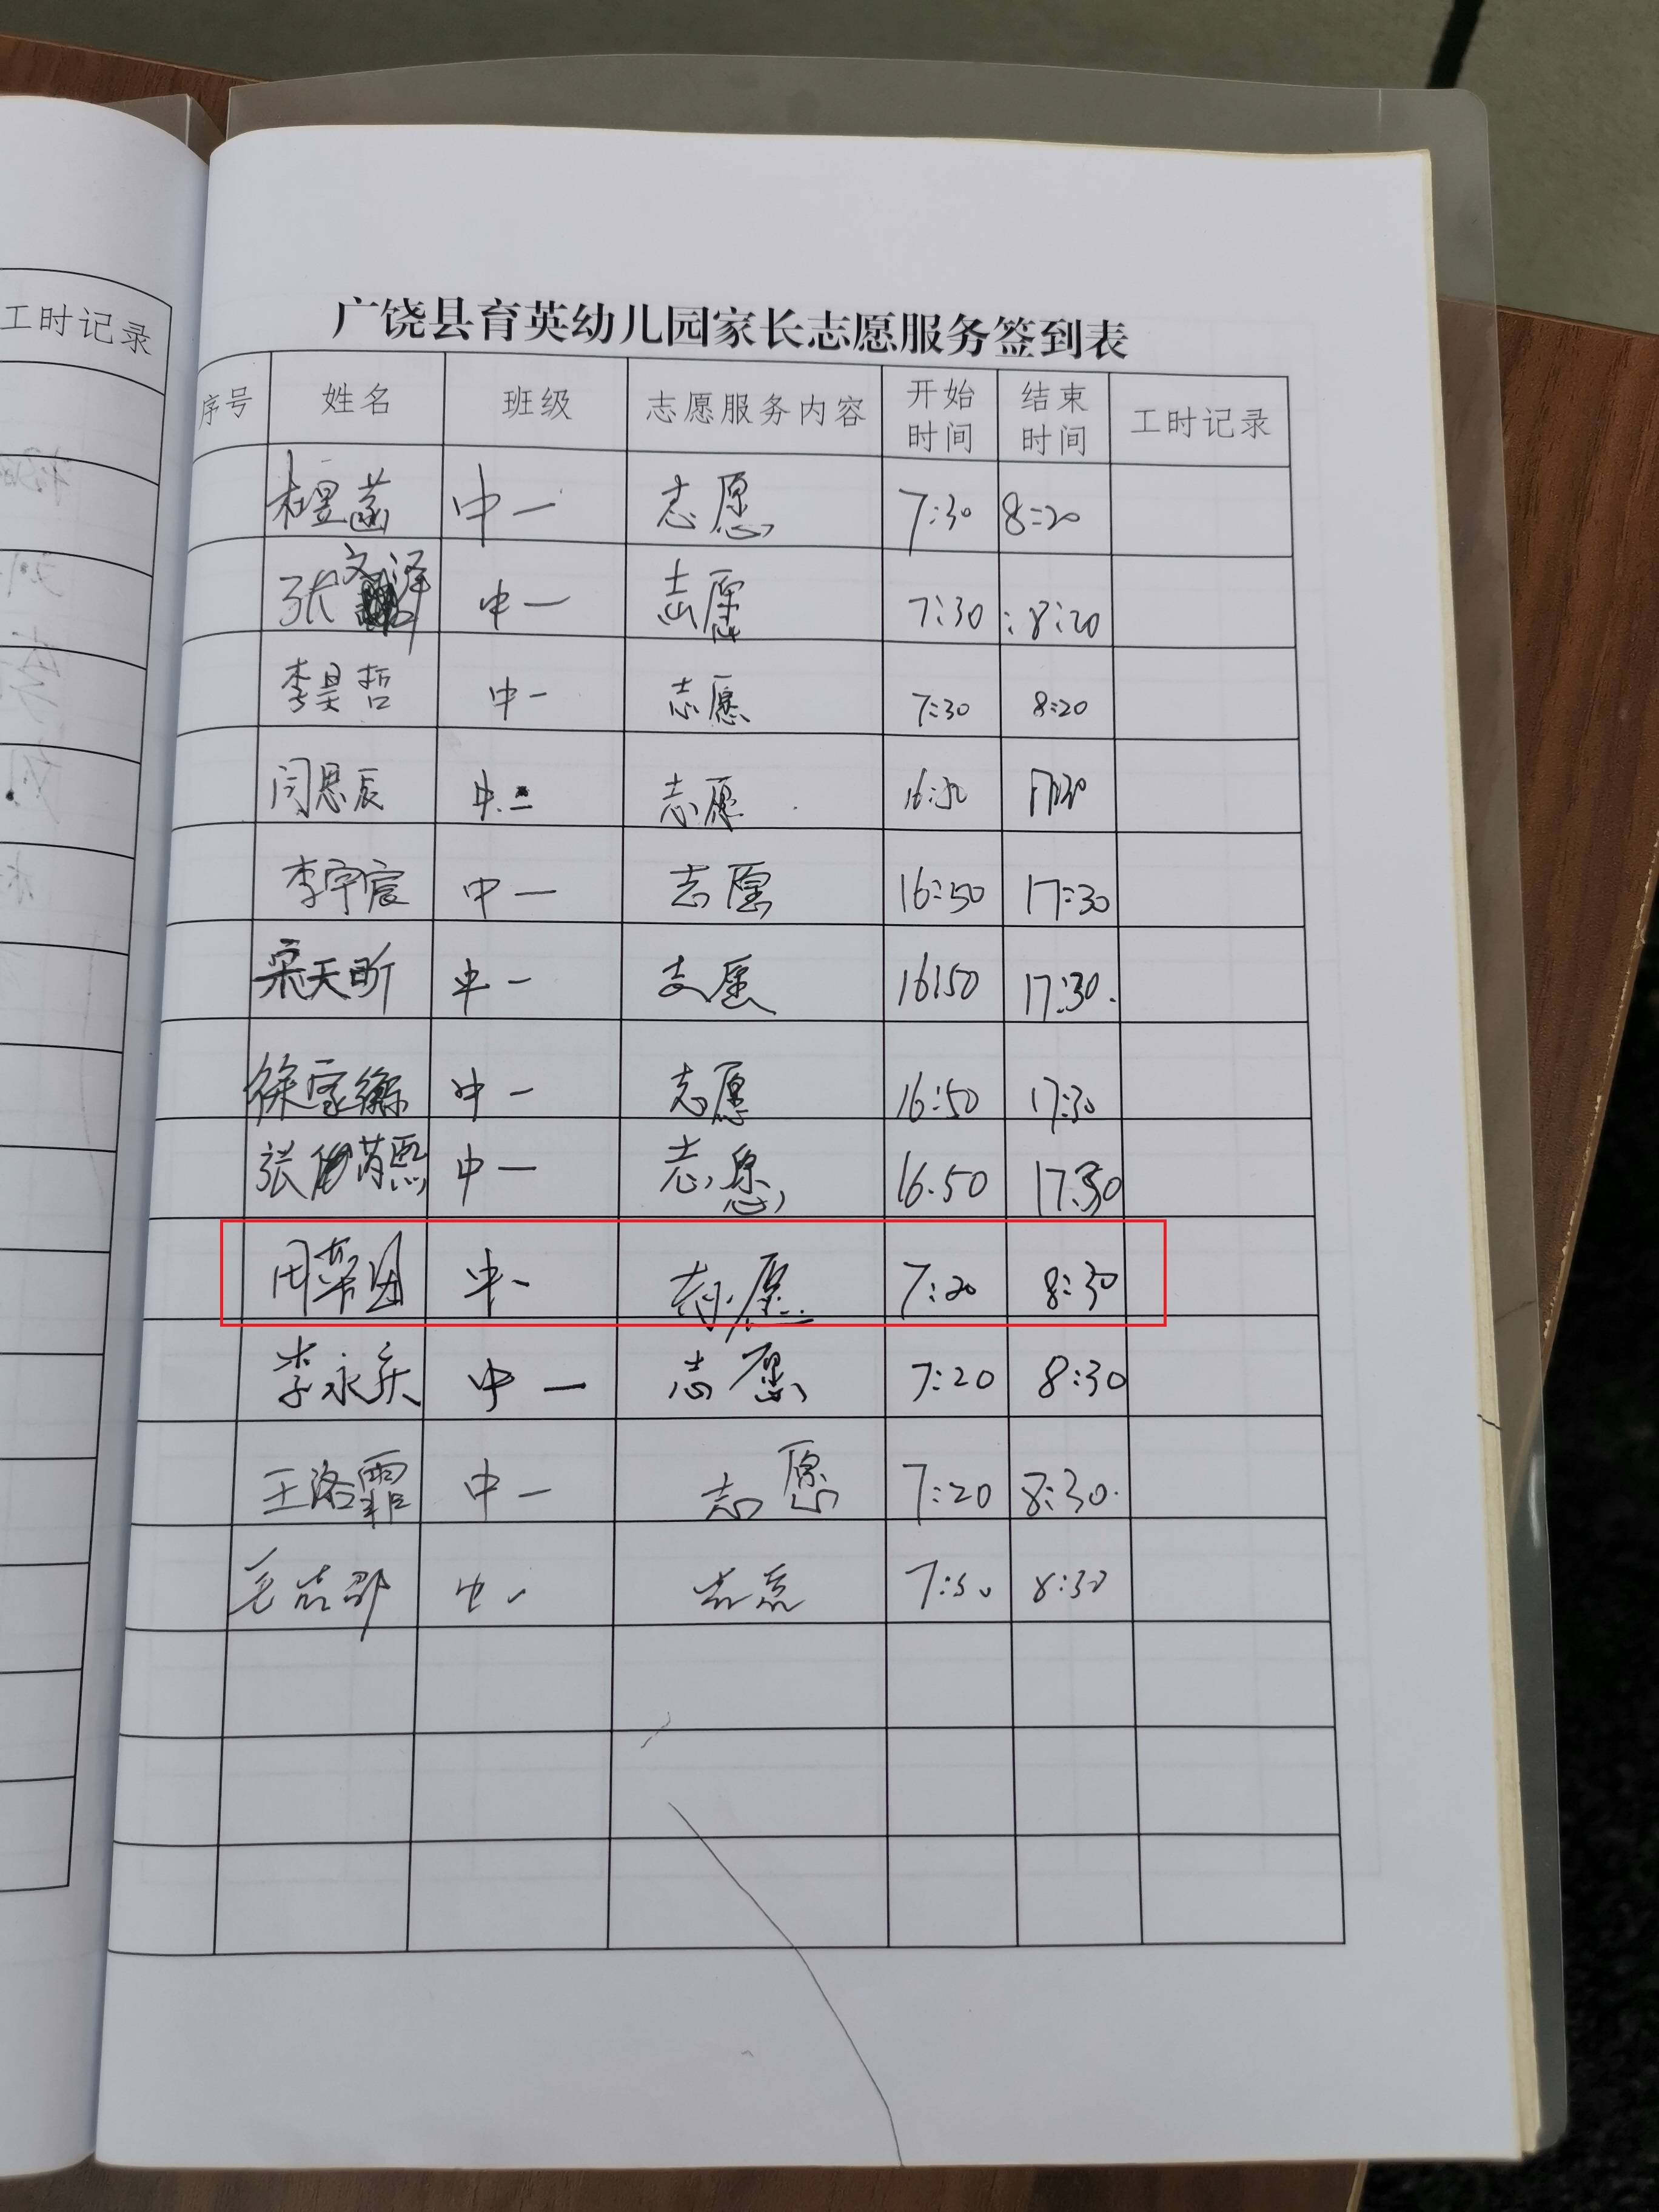 工时记录
广饶县育英幼儿园家长志愿服务签到表
序号 姓名 班级 志愿服务内容 开始时间 结束时间 工时记录
中一 志愿 7:30 8:20
张文泽 中一 志愿 7:30 :8:20
李昊哲 中一 志愿 7:30 8:20
闫恩辰 中二 志愿 16:50 17:30
李宇宸 中一 志愿 16:50 17:30
宋天昕 中一 志愿 16:50 17:30.
徐家衡 中一 志愿 16:50 17:30
张芮熙 中一 志愿 16.50 17:30
周 中一 志愿 7:20 8:30
李永庆 中一 志愿 7:20 8:30
王洛霏 中一 志愿 7:20 8:30.
毛 中一 志愿 7:30 8:30